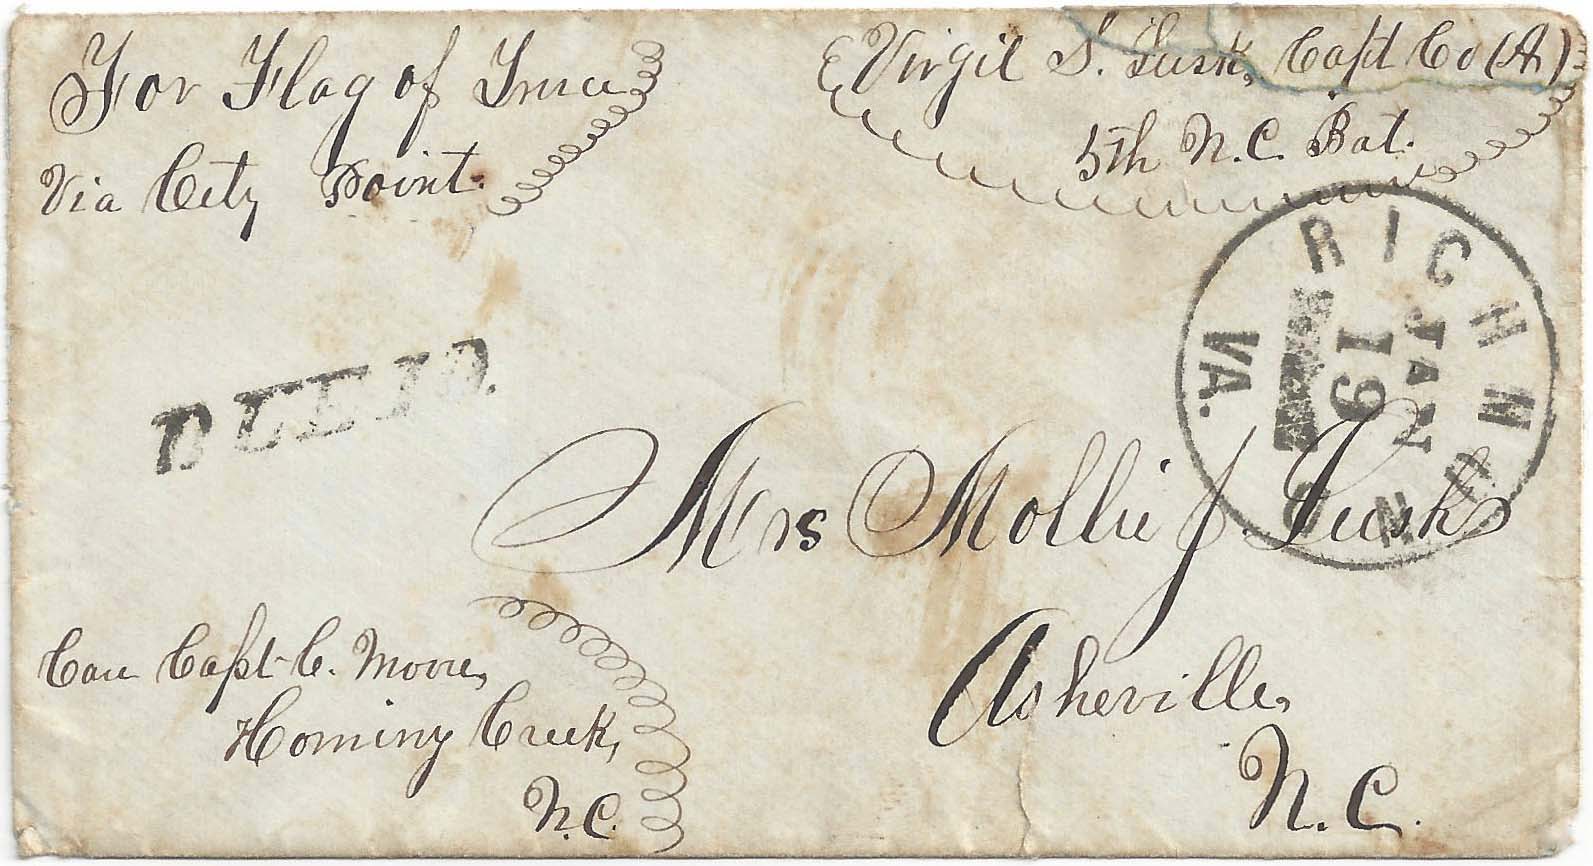 For Flag of Truce
Via City Point.
Virgil S. Lusk, Capt Co (A)
5th N.C. Bat.
RICHMOND
VA.
JAN
19
DUE 10.
Mrs Mollie J. Lusk
Asheville,
N.C.
Care Capt C. Moore,
Hominy Creek,
N.C.